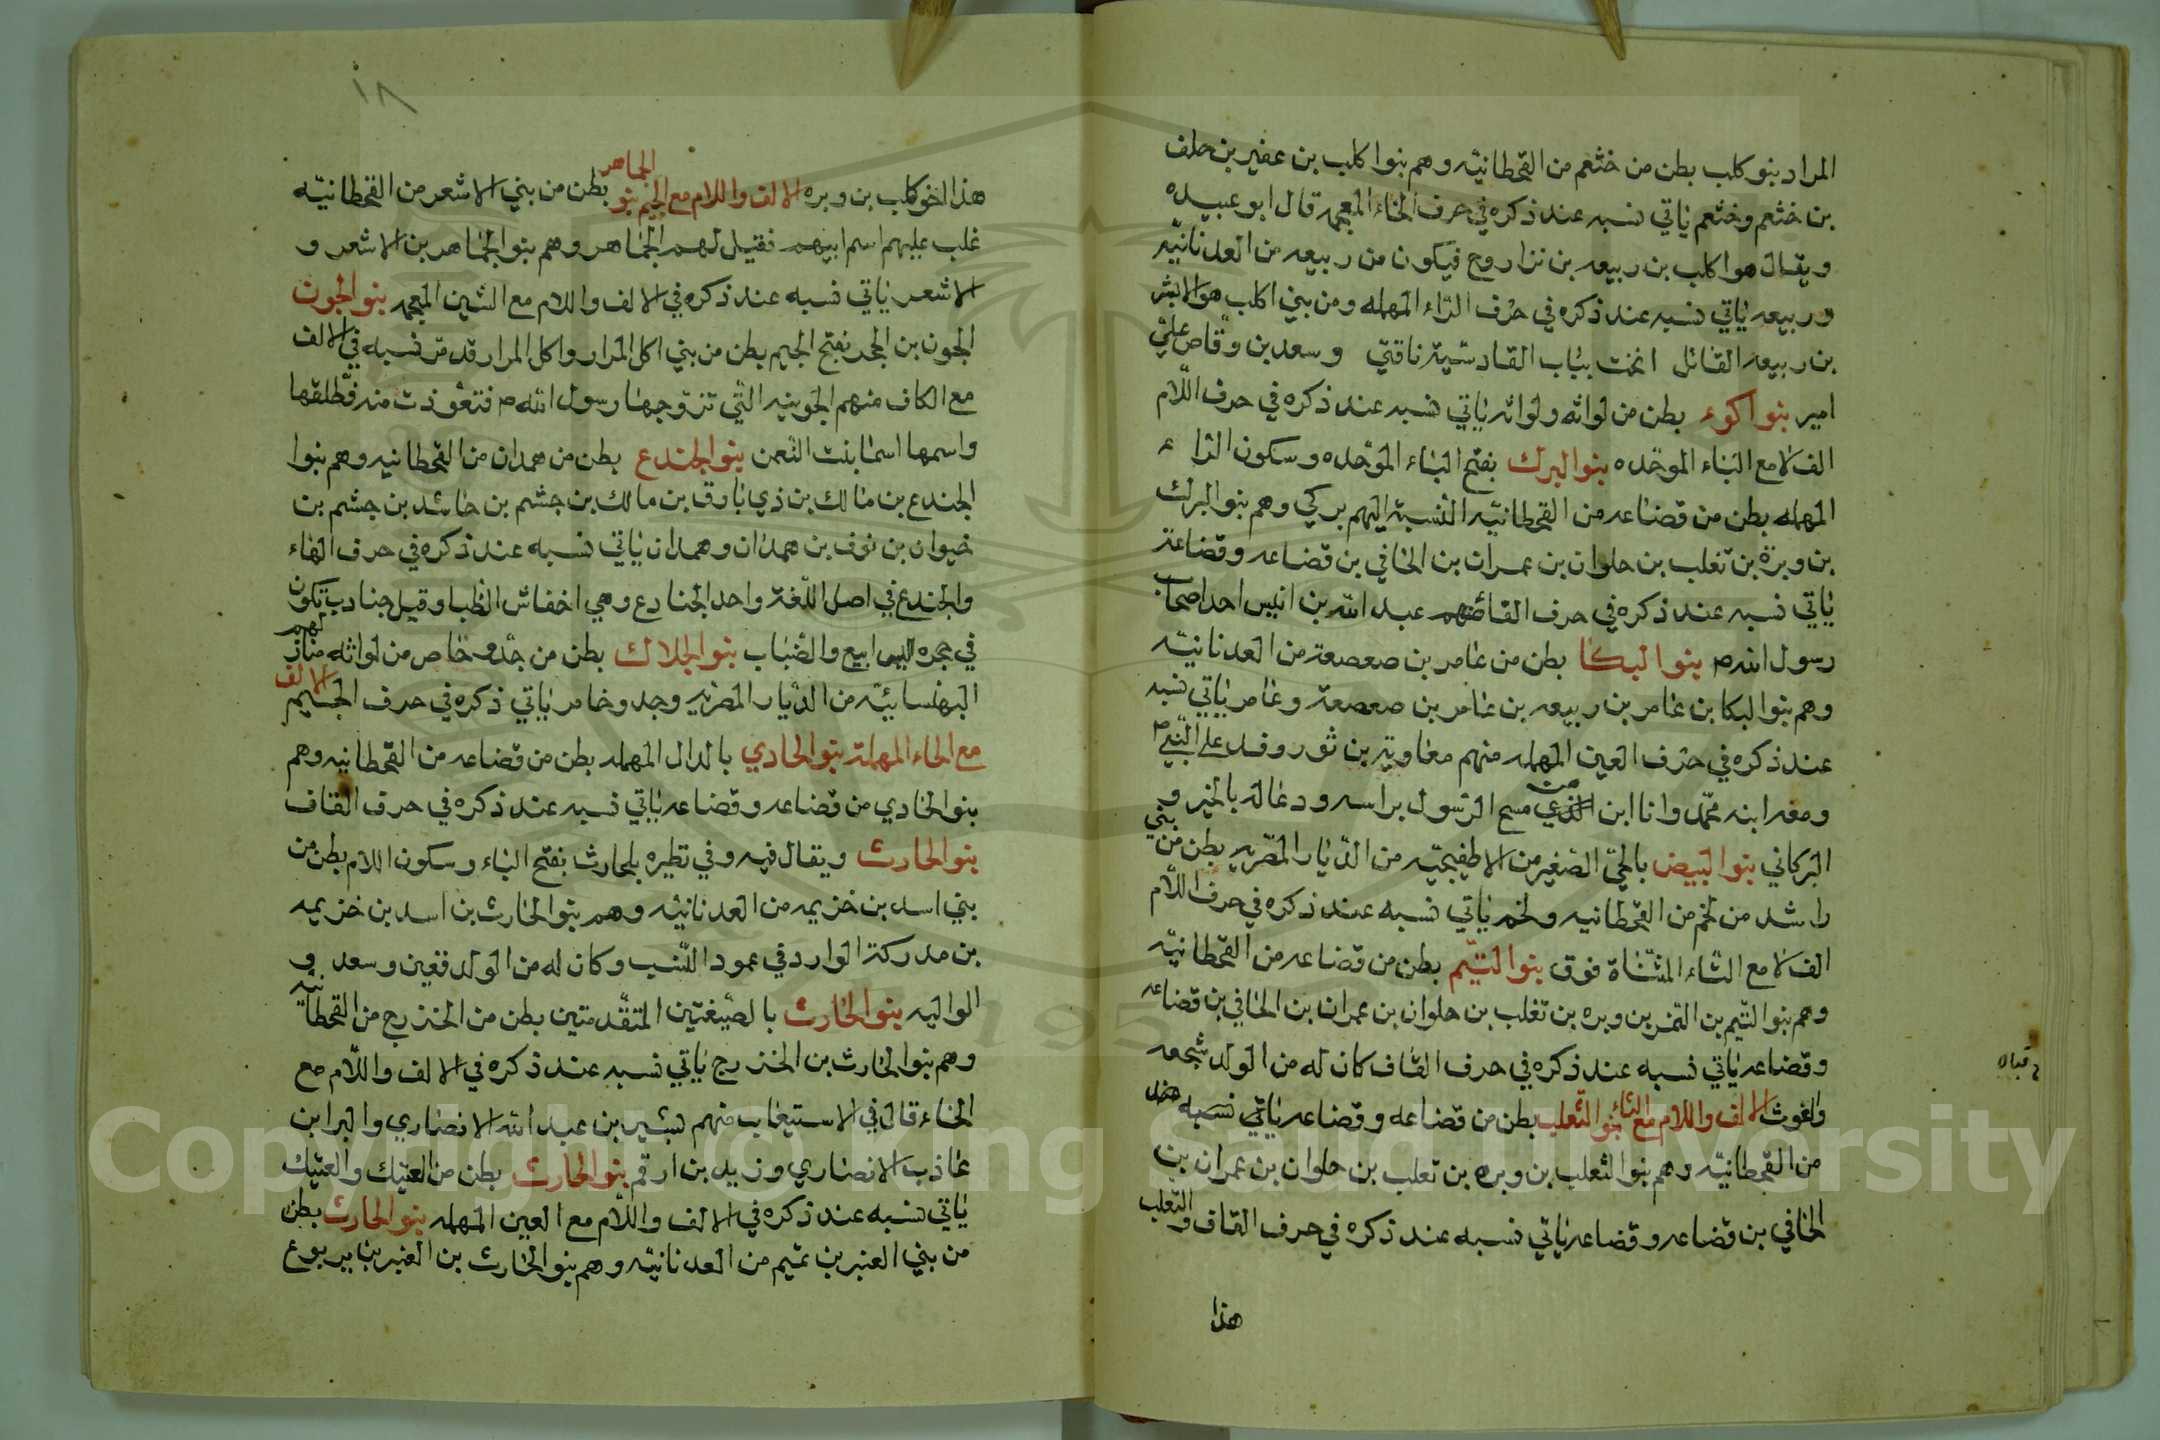 المراد بنو كلب بطن من خثعم من القحطانيه وهم بنوا كلب بن عفير بن حلف
بن خثعم وخثعم ياتي نسبه عند ذكره في حرف الخاء المعجمه قال ابو عبيده
ويقال هو اكلب بن ربيعه بن نزار وح فيكون من ربيعه من العدنانيّه
وربيعه ياتي نسبه عند ذكره في حرف الراء المهمله ومن بني اكلب هو الابشر
بن ربيعه القائل انخت بباب القادسية ناقتي وسعد بن وقاص عليّ
امير بنوا كوء بطن من لواثه ولواثه ياتي نسبه عند ذكره في حرف اللّام
الف لا مع الباء الموحده بنوا البرك بفتح الباء الموحده وسكون الراء
المهمله بطن من قضاعه من القحطانيّه النسبة اليهم بركي وهم بنوا البرك
بن وبرة بن تغلب بن حلوان بن عمران بن الحافي بن قضاعه وقضاعة
ياتي نسبه عند ذكره في حرف القاف منهم عبد الله بن انيس احد اصحاب
رسول الله ص بنوا البكا بطن من عامر بن صعصعة من العدنانيّه
وهم بنوا البكا بن عامر بن ربيعه بن عامر بن صعصعة وعامر ياتي نسبه
عند ذكره في حرف العين المهمله منهم معاوية بن ثور وفد على النّبي ص
ومعه ابنه محمّد وانا ابن الذي مسح الرّسول براسه ودعا له بالخير و
البركاني بنوا البيض بالحيّ الصّغير من الاطفيحيّه من الدّيار المصريه بطن من بني
راشد من لخم من القحطانيه ولخم ياتي نسبه عند ذكره في حرف اللّام
الف لا مع التّاء المثنّاة فوق بنوا التّيم بطن من قضاعه من القحطانيّه
وهم بنوا التّيم بن النمر بن وبره بن تغلب بن حلوان بن عمران بن الحافي بن قضاعه
وقضاعه ياتي نسبه عند ذكره في حرف القاف كان له من الولد شجعه
والغوث الالف واللام مع الثاء بنو الثّعلب بطن من قضاعه وقضاعه ياتي نسبه
من القحطانيّه وهم بنوا الثعلب بن وبره بن تعلب بن حلوان بن عمران بن
الحافي بن قضاعه وقضاعه ياتي نسبه عند ذكره في حرف القاف والثّعلب
هذا
١٨
هذا اخو كلب بن وبره الالف واللام مع الجيم بنو الجماهر بطن من بني الاشعر من القحطانيّه
غلب عليهم اسم ابيهم فقيل لهم الجماهر وهم بنوا الجماهر بن الاشعر و
الاشعر ياتي نسبه عند ذكره في الالف واللام مع الشين المعجمه بنوا الجون
الجون بن الحجر بفتح الجيم بطن من بني اكل المرار واكل المرار قد مرّ نسبه في الالف
مع الكاف منهم الجونيه الّتي تزوّجها رسول الله ص فتعوّذت منه فطلقها
واسمها اسما بنت النّعمن بنوا الجندع بطن من همدان من القحطانيه وهم بنوا
الجندع بن مالك بن ذي بارق بن مالك بن جشم بن حاشد بن جشم بن
خيوان بن نوف بن همدان وهمدان ياتي نسبه عند ذكره في حرف الهاء
والجندع في اصل اللّغة واحد الجنادع وهي اخفاش الظبا وقيل جنادب تكون
في جحره اليرابيع والضّباب بنوا الجلاك بطن من جدّو خاص من لواثه منازلهم
البهنسائيّه من الدّيار المصريه وجدو خاص ياتي ذكره في حرف الجيم الالف
مع الحاء المهملة بنوا الحادي بالدال المهمله بطن من قضاعه من القحطانيه وهم
بنوا الحادي من قضاعه وقضاعه ياتي نسبه عند ذكره في حرف القاف
بنوا الحارث ويقال فيه وفي نظيره بلحارث بفتح الباء وسكون اللام بطن من
بني اسد بن خزيمه من العدنانيّه وهم بنوا الحارث بن اسد بن خزيمه
بن مدركة الوارد في عمود النّسب وكان له من الولد قعين وسعد و
الواليه بنوا الحارث بالصّيغتين المتقدّمتين بطن من الخزرج من القحطانيه
وهم بنوا الحارث بن الخزرج ياتي نسبه عند ذكره في الالف واللّام مع
الخاء قال في الاستيعاب منهم بشير بن عبد الله الانصاري والبرا بن
عاذب الانصاري وزيد بن ارقم بنوا الحارث بطن من العتيك والعتيك
ياتي نسبه عند ذكره في الالف واللّام مع العين المهمله بنوا الحارث بطن
من بني العنبر بن تميم من العدنانيّه وهم بنوا الحارث بن العنبر بن يربوع
Copyright © King Saud University
1957